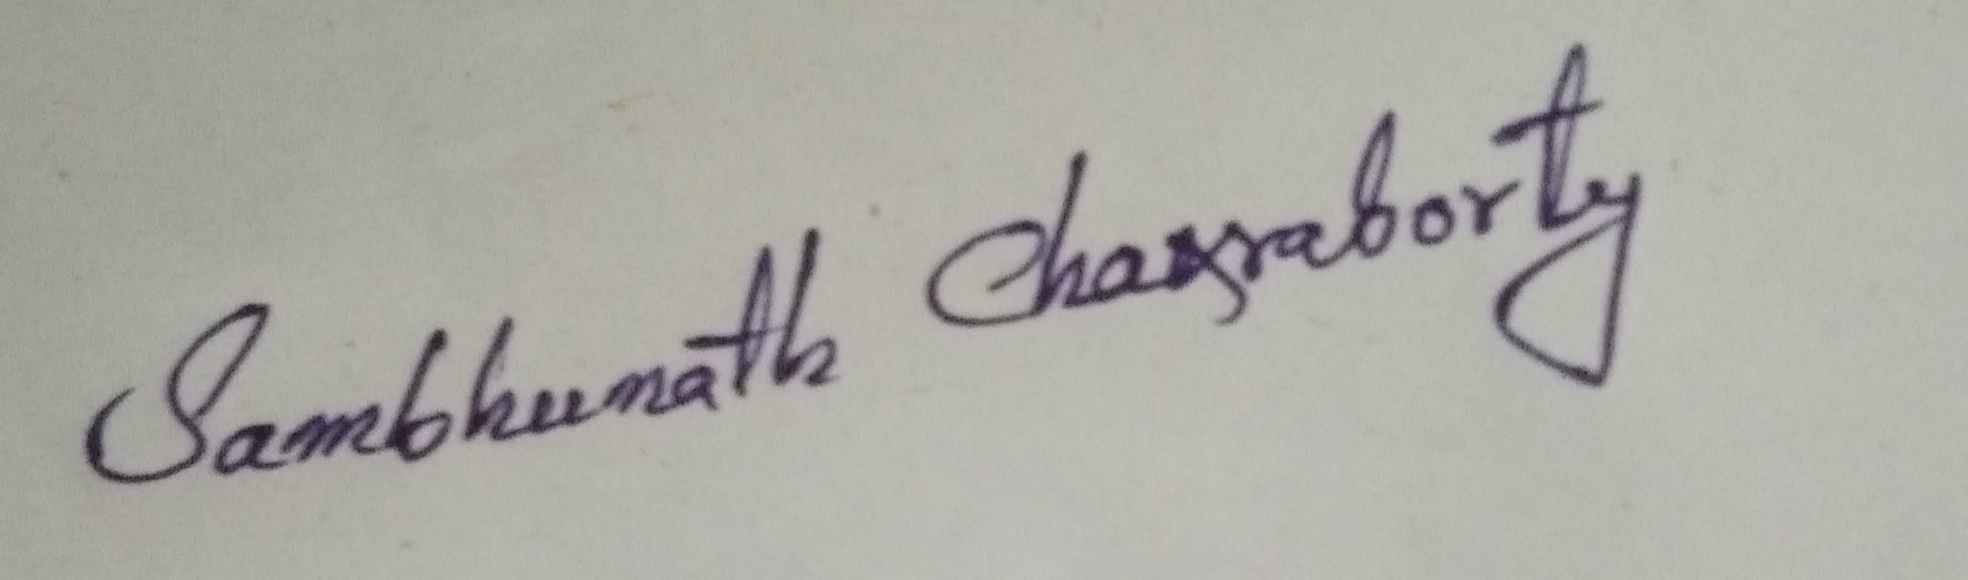 Sambhunath Chakraborty